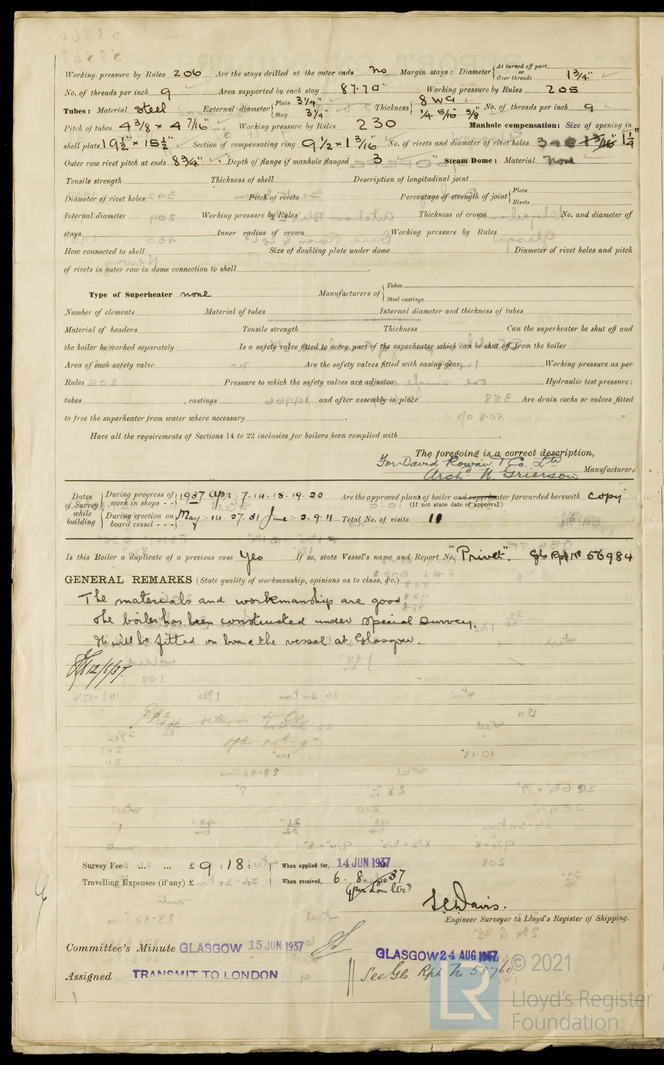 Working pressure by Rules 206 Are the stays drilled at the outer ends No Margin stays: Diameter { At turned off part, or Over threads 1 3/4"
No. of threads per inch 9 Area supported by each stay 87.70" Working pressure by Rules 205
Tubes: Material Steel External diameter { Plain 3 1/4" Stay 3 1/4" Thickness { 8 WG 1/4 5/16 3/8" No. of threads per inch 9
Pitch of tubes 4 3/8 × 4 7/16" Working pressure by Rules 230 Manhole compensation: Size of opening in
shell plate 19 1/2" × 15 1/2" Section of compensating ring 9 1/2 × 1 3/16" No. of rivets and diameter of rivet holes 1 1/4"
Outer row rivet pitch at ends 8 3/4" Depth of flange if manhole flanged 3 Steam Dome: Material none
Tensile strength Thickness of shell Description of longitudinal joint
Diameter of rivet holes Pitch of rivets Percentage of strength of joint { Plate Rivets
Internal diameter Working pressure by Rules Thickness of crown No. and diameter of
stays Inner radius of crown Working pressure by Rules
How connected to shell Size of doubling plate under dome Diameter of rivet holes and pitch
of rivets in outer row in dome connection to shell
Type of Superheater none Manufacturers of { Tubes Steel castings
Number of elements Material of tubes Internal diameter and thickness of tubes
Material of headers Tensile strength Thickness Can the superheater be shut off and
the boiler be worked separately Is a safety valve fitted to every part of the superheater which can be shut off from the boiler
Area of each safety valve Are the safety valves fitted with easing gear Working pressure as per
Rules Pressure to which the safety valves are adjusted Hydraulic test pressure:
tubes , castings and after assembly in place Are drain cocks or valves fitted
to free the superheater from water where necessary
Have all the requirements of Sections 14 to 22 inclusive for boilers been complied with
The foregoing is a correct description,
For David Rowan & Co. Ltd
Archd. W. Grierson Manufacturers
Dates of Survey while building { During progress of work in shops - - 1937 Apr. 7. 14. 15. 19. 20 Are the approved plans of boiler and superheater forwarded herewith Copy
(If not state date of approval.)
During erection on board vessel - - - May: 14. 27. 31 June: 2. 9. 11 Total No. of visits 11
Is this Boiler a duplicate of a previous case Yes If so, state Vessel's name and Report No. "Privet". Gls Rpt No 56984
GENERAL REMARKS (State quality of workmanship, opinions as to class, &c.)
The materials and workmanship are good.
The boiler has been constructed under Special Survey.
It will be fitted on board the vessel at Glasgow.
12/6/37.
Survey Fee ... ... £ 9 : 18 : When applied for, 14 JUN 1937
Travelling Expenses (if any) £ : : When received, 6. 8. 37
S.C. Davis.
Engineer Surveyor to Lloyd's Register of Shipping.
Committee's Minute GLASGOW 15 JUN 1937 GLASGOW 24 AUG 1937
Assigned TRANSMIT TO LONDON See Gls. Rpt No 58760
© 2021
Lloyd's Register
Foundation
LR